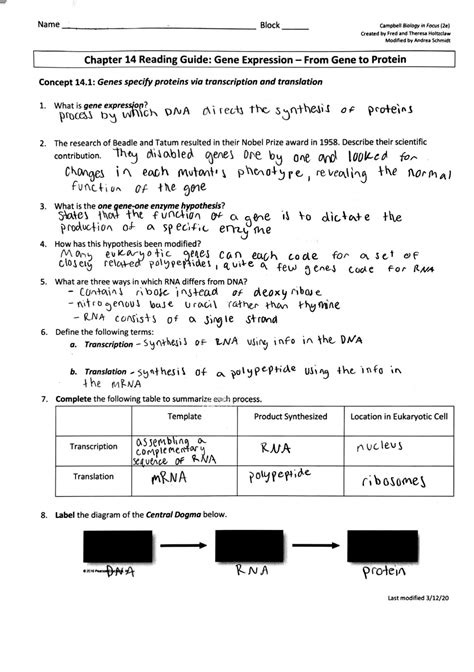 Name Block Campbell Biology in Focus (2e)
Created by Fred and Theresa Holtzclaw
Modified by Andrea Schmidt
Chapter 14 Reading Guide: Gene Expression – From Gene to Protein
Concept 14.1: Genes specify proteins via transcription and translation
1. What is gene expression?
process by which DNA directs the synthesis of proteins
2. The research of Beadle and Tatum resulted in their Nobel Prize award in 1958. Describe their scientific
contribution. They disabled genes one by one and looked for
changes in each mutant's phenotype, revealing the normal
function of the gene
3. What is the one gene-one enzyme hypothesis?
States that the function of a gene is to dictate the
production of a specific enzyme
4. How has this hypothesis been modified?
Many eukaryotic genes can each code for a set of
closely related polypeptides, quite a few genes code for RNA
5. What are three ways in which RNA differs from DNA?
- Contains ribose instead of deoxyribose
- nitrogenous base uracil rather than thymine
- RNA consists of a single strand
6. Define the following terms:
a. Transcription - synthesis of RNA using info in the DNA
b. Translation - synthesis of a polypeptide using the info in
the mRNA
7. Complete the following table to summarize each process.
Template Product Synthesized Location in Eukaryotic Cell
Transcription assembling a complementary sequence of RNA RNA nucleus
Translation mRNA polypeptide ribosomes
8. Label the diagram of the Central Dogma below.
DNA RNA protein
Last modified 3/12/20